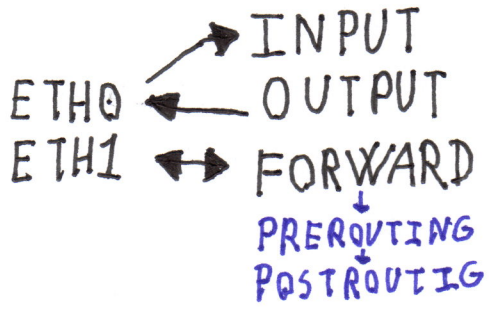 INPUT
ETH0 OUTPUT
ETH1 FORWARD
PREROUTING
POSTROUTIG